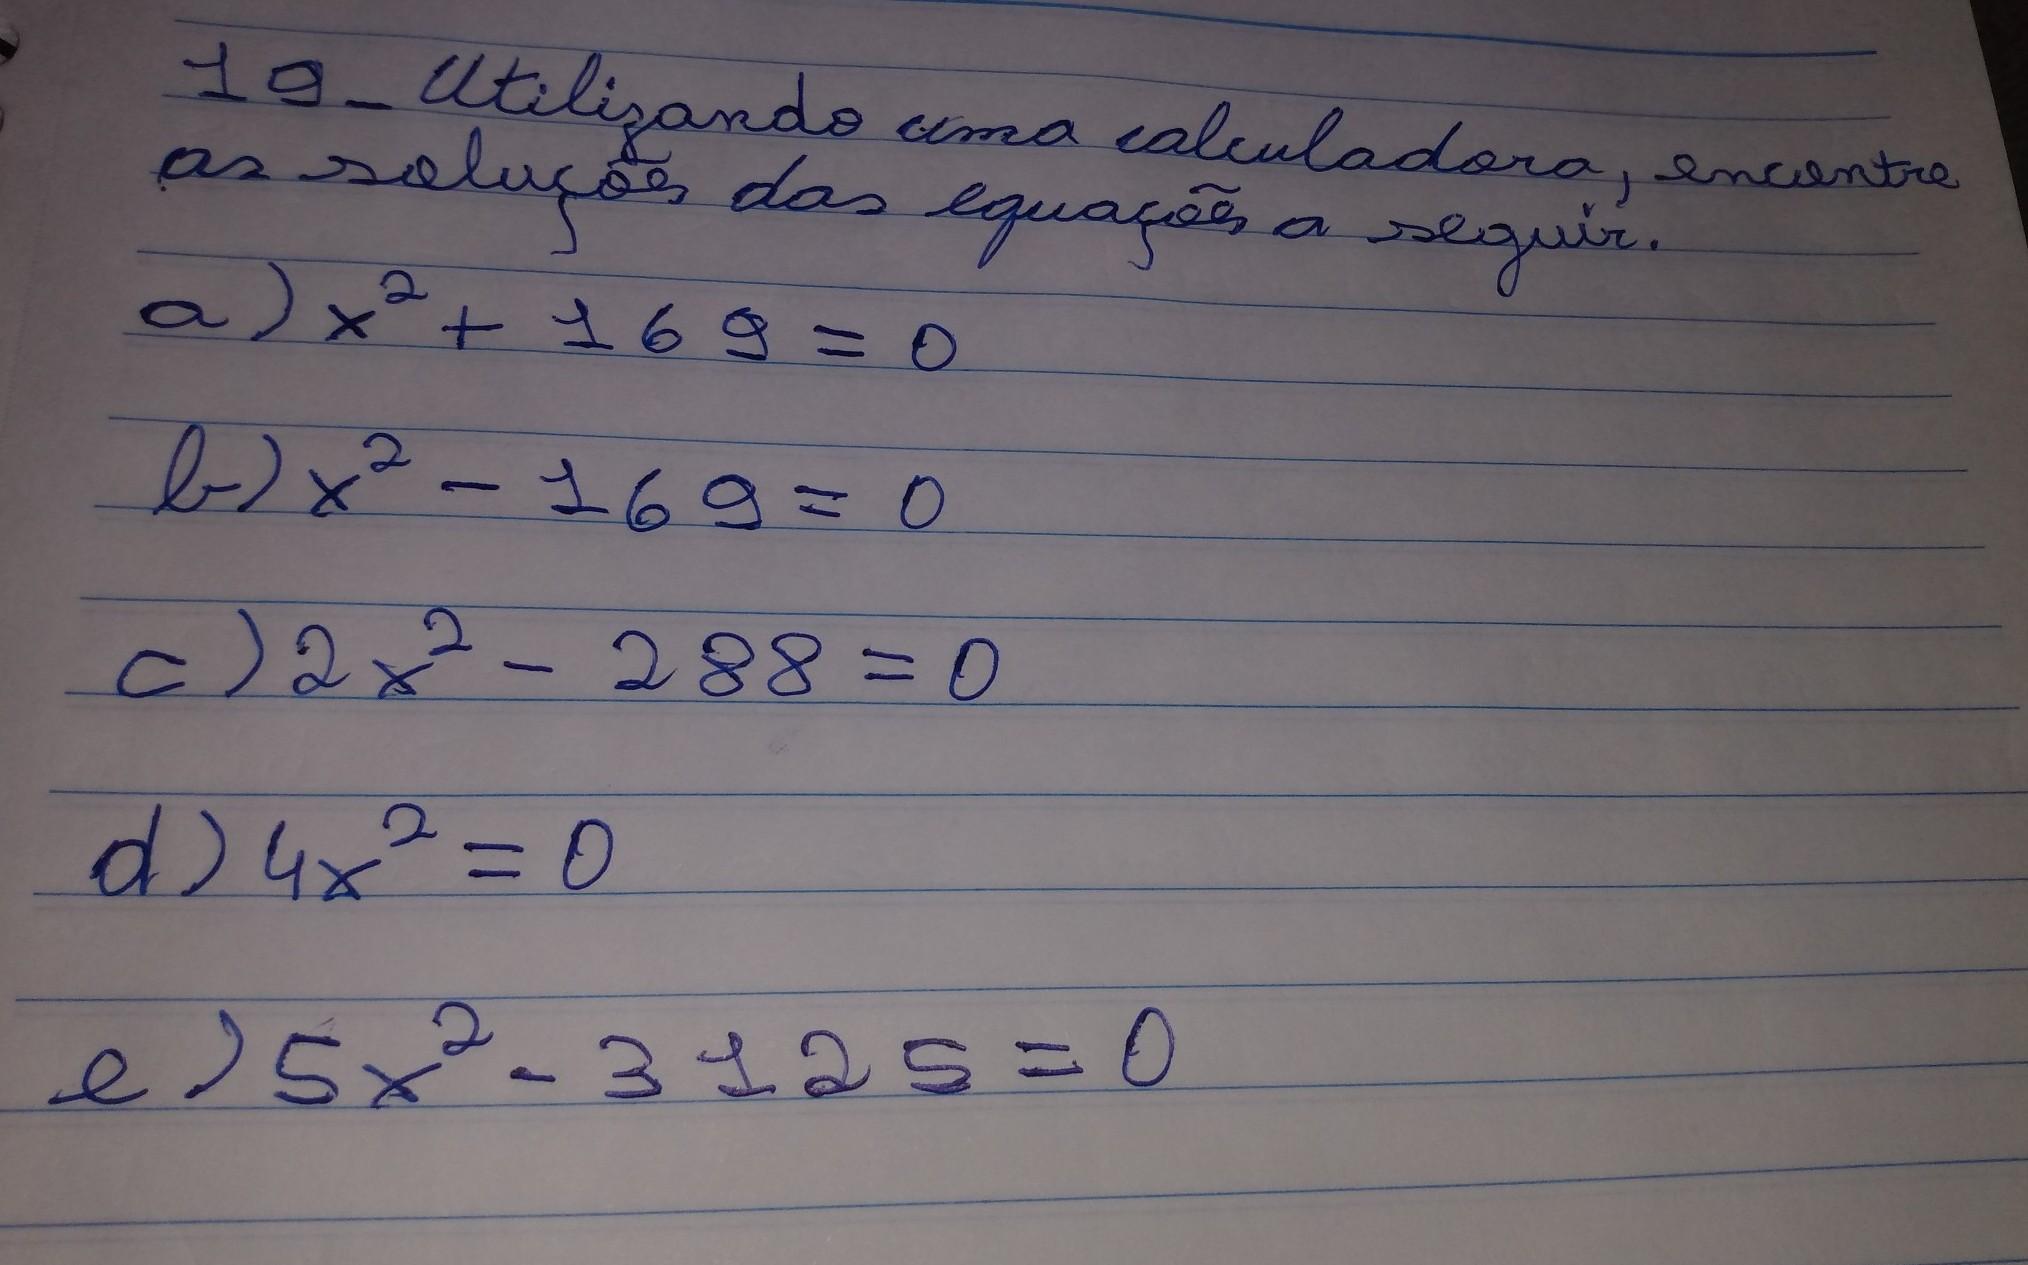 19 - Utilizando uma calculadora, encontre
as soluções das equações a seguir.
a) x² + 169 = 0
b) x² - 169 = 0
c) 2x² - 288 = 0
d) 4x² = 0
e) 5x² - 3125 = 0